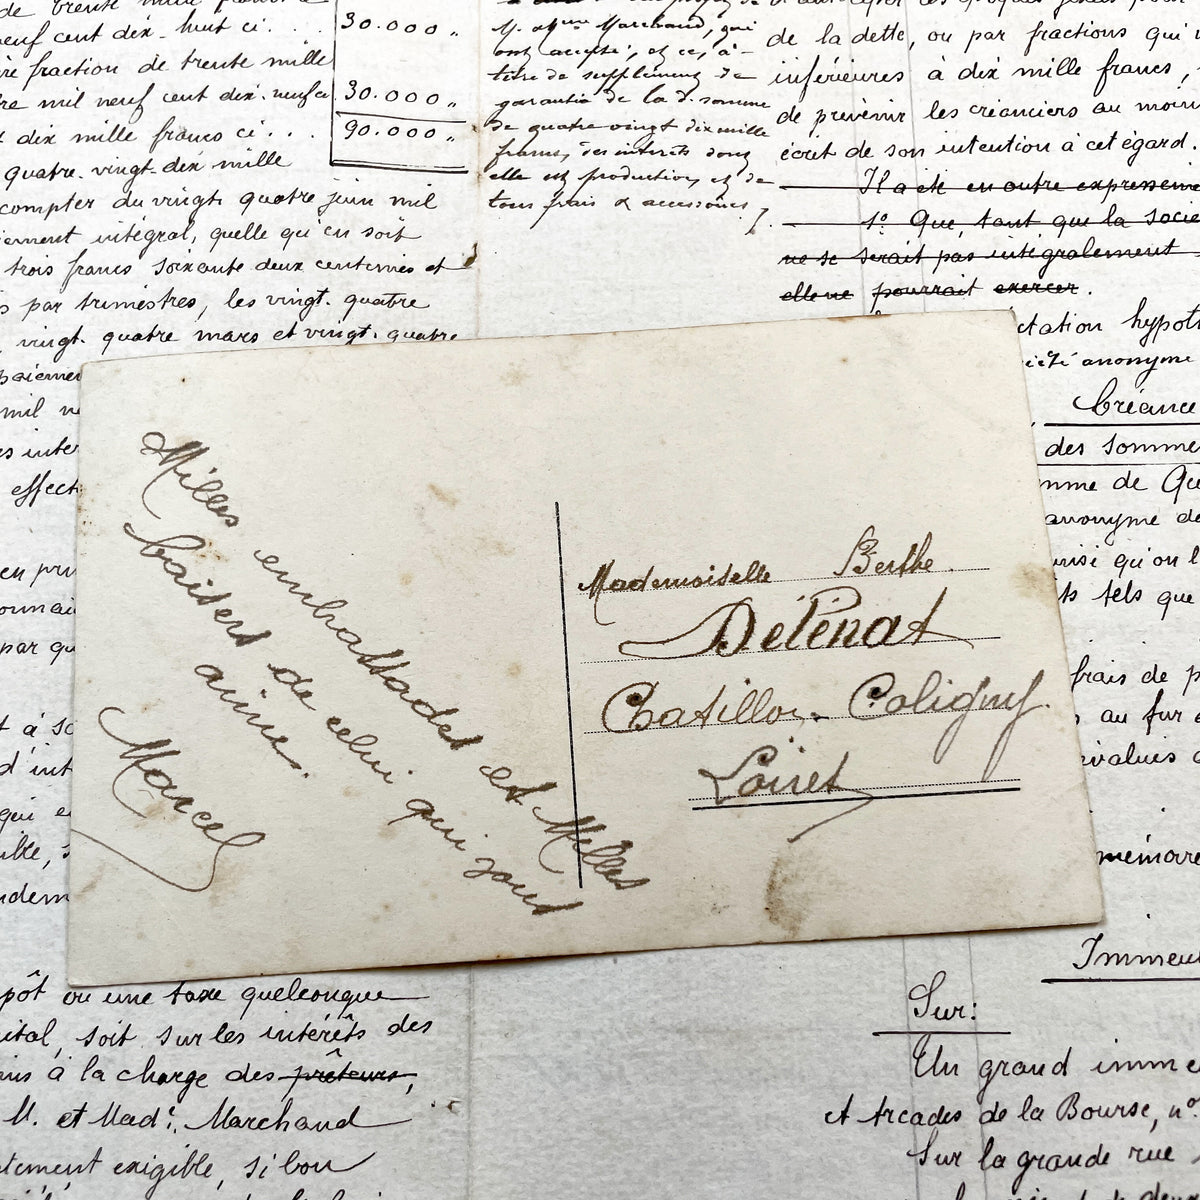 de trente mille francs à
neuf cent dix-huit ci. . .
fraction de trente mille
mil neuf cent dix-neuf ci
dix mille francs ci. . .
quatre-vingt-dix mille
30.000 „
30.000 „
90.000 „
compter du vingt quatre juin mil
intégral, quelle qu'en soit
trois francs soixante deux centimes et
par trimestres, les vingt-quatre
vingt-quatre mars et vingt-quatre
mil
effect
par
M. Mme Marchand, qui
ont accepté, et ce, à
titre de supplément de
garantie de la d. somme
de quatre vingt dix mille
francs, des intérêts dont
elle est productive, et de
tous frais & accessoires
de la dette, ou par fractions qui
inférieures à dix mille francs,
de prévenir les créanciers au moins
écrit de son intention à cet égard.
Il a été en outre expressément
1° Que, tant que la Socié
ne se serait pas intégralement
elle ne pourrait exercer.
ctation hypoth
anonyme
Créance
des sommes
mme de Qu
anonyme de
qu'on l
tels que
frais de p
au fur e
mémoire
Immeu
Sur:
Un grand imme
et Arcades de la Bourse, n°
Sur la grande rue
Milles embrassades et Milles
baisers de celui qui vous
aime.
Marcel
Mademoiselle Berthe.
Délénat
Chatillon-Coligny.
Loiret
pôt ou une taxe quelconque
ital, soit sur les intérêts des
à la charge des prêteurs,
M. et Mad. Marchand
exigible, si bon